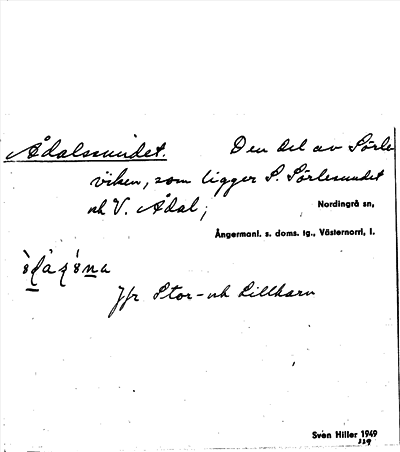 Ådalssundet. Den del av Sörle
viken, som ligger S. Sörlesundet
och V. Ådal;
Nordingrå sn,
Ångermanl. s. doms. tg., Västernorrl, l.
Jfr Stor- och Lillharn
Sven Hiller 1949
119